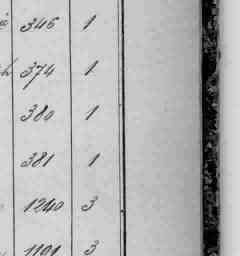 346 1
374 1
380 1
381 1
1240 3
1191 3